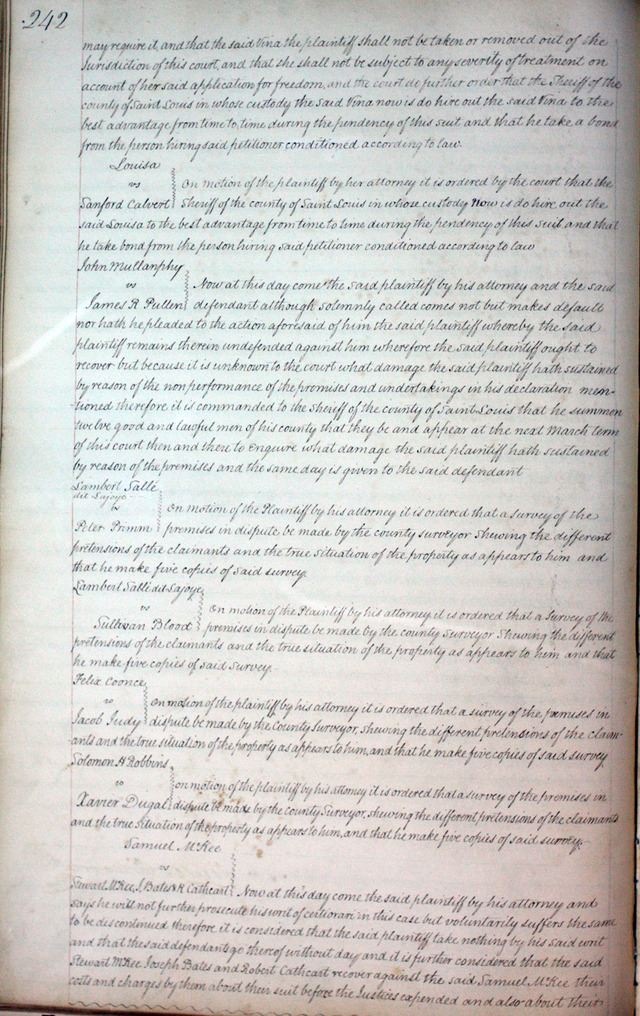 242
may require it, and that the said Vina the plaintiff shall not be taken or removed out of the
Jurisdiction of this court, and that she shall not be subject to any severity of treatment on
account of her said application for freedom, and the court do further order that the Sheriff of the
county of Saint Louis in whose custody the said Vina now is do hire out the said Vina to the
best advantage from time to time during the pendency of this suit and that he take a bond
from the person hiring said petitioner conditioned according to law.
Louisa
vs
On motion of the plaintiff by her attorney it is ordered by the court that the
Sanford Calvert Sheriff of the county of Saint Louis in whose custody Now is do hire out the
said Louisa to the best advantage from time to time during the pendency of this suit and that
he take bond from the person hiring said petitioner conditioned according to law
John Mullanphy
vs
Now at this day come the said plaintiff by his attorney and the said
James R Pullen defendant although solemnly called comes not but makes default
nor hath he pleaded to the action aforesaid of him the said plaintiff whereby the said
plaintiff remains therein undefended against him wherefore the said plaintiff ought to
recover but because it is unknown to the court what damage the said plaintiff hath sustained
by reason of the nonperformance of the promises and undertakings in his declaration men-
tioned therefore it is commanded to the Sheriff of the county of Saint Louis that he summon
twelve good and lawful men of his county that they be and appear at the next March term
of this court then and there to enquire what damage the said plaintiff hath sustained
by reason of the premises and the same day is given to the said defendant
Lambert Sallé
dit Lajoye
vs
On motion of the Plaintiff by his attorney it is ordered that a survey of the
Peter Primm premises in dispute be made by the county surveyor shewing the different
pretensions of the claimants and the true situation of the property as appears to him and
that he make five copies of said survey.
Lambert Salli dit Lajoye
vs
On motion of the Plaintiff by his attorney it is ordered that a Survey of the
Sullivan Blood premises in dispute be made by the county Surveyor shewing the different
pretensions of the claimants and the true situation of the property as appears to him and that
he make five copies of said Survey.
Felix Coonce
vs
On motion of the plaintiff by his attorney it is ordered that a survey of the premises in
Jacob Judy dispute be made by the County Surveyor, shewing the different pretensions of the claim-
ants and the true situation of the property as appears to him, and that he make five copies of said survey
Solomon H Robbins
vs
on motion of the plaintiff by his attorney it is ordered that a survey of the premises in
Xavier Dugal dispute to made by the County Surveyor, shewing the different pretensions of the claimants
and the true situation of the property as appears to him, and that he make five copies of said survey.
Samuel McKee
vs
Stewart McKee J Bates & R Cathcart Now at this day come the said plaintiff by his attorney and
says he will not further prosecute his writ of certiorari in this case but voluntarily suffers the same
to be discontinued therefore it is considered that the said plaintiff take nothing by his said writ
and that the said defendants go thereof without day and it is further considered that the said
Stewart McKee Joseph Bates and Robert Cathcart recover against the said Samuel McKee their
costs and charges by them about their suit before the Justices expended and also about their